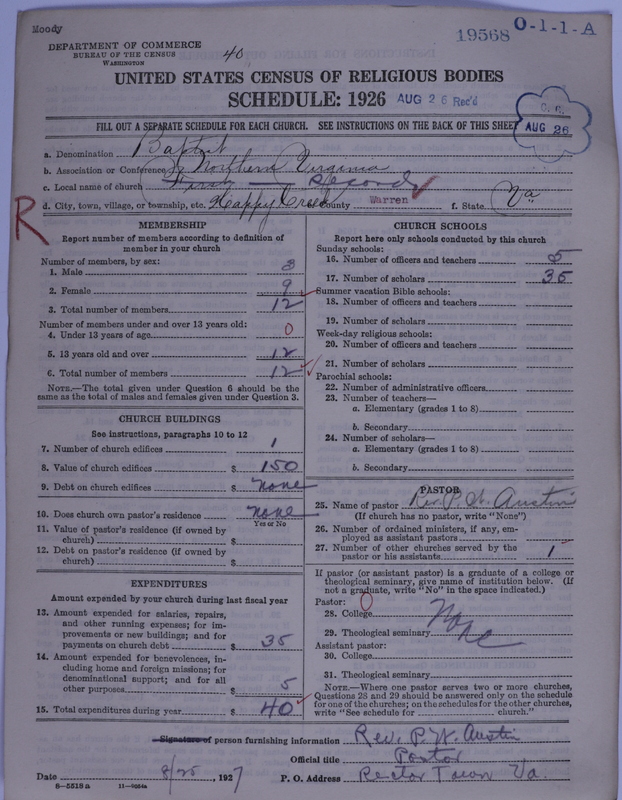 Moody
19568
O-1-1-A
DEPARTMENT OF COMMERCE
BUREAU OF THE CENSUS
WASHINGTON
40
UNITED STATES CENSUS OF RELIGIOUS BODIES
SCHEDULE: 1926 AUG 26 Rec'd
FILL OUT A SEPARATE SCHEDULE FOR EACH CHURCH. SEE INSTRUCTIONS ON THE BACK OF THIS SHEET
AUG 26
a. Denomination Baptist
b. Association or Conference Northern Virginia
c. Local name of church First
d. City, town, village, or township, etc. Happy Creek e. County Warren f. State Va
R
MEMBERSHIP
Report number of members according to definition of
member in your church
Number of members, by sex:
1. Male 3
2. Female 9
3. Total number of members 12
Number of members under and over 13 years old:
4. Under 13 years of age 0
5. 13 years old and over 12
6. Total number of members 12
NOTE.—The total given under Question 6 should be the
same as the total of males and females given under Question 3.
CHURCH BUILDINGS
See instructions, paragraphs 10 to 12
7. Number of church edifices 1
8. Value of church edifices $ 150
9. Debt on church edifices $ none
10. Does church own pastor's residence none
Yes or No
11. Value of pastor's residence (if owned by
church) $
12. Debt on pastor's residence (if owned by
church) $
EXPENDITURES
Amount expended by your church during last fiscal year
13. Amount expended for salaries, repairs,
and other running expenses; for im-
provements or new buildings; and for
payments on church debt $ 35
14. Amount expended for benevolences, in-
cluding home and foreign missions; for
denominational support; and for all
other purposes $ 5
15. Total expenditures during year $ 40
CHURCH SCHOOLS
Report here only schools conducted by this church
Sunday schools:
16. Number of officers and teachers
17. Number of scholars 35
Summer vacation Bible schools:
18. Number of officers and teachers
19. Number of scholars
Week-day religious schools:
20. Number of officers and teachers
21. Number of scholars
Parochial schools:
22. Number of administrative officers
23. Number of teachers—
a. Elementary (grades 1 to 8)
b. Secondary
24. Number of scholars—
a. Elementary (grades 1 to 8)
b. Secondary
PASTOR
25. Name of pastor Rev. P. W. Austin
(If church has no pastor, write "None")
26. Number of ordained ministers, if any, em-
ployed as assistant pastors
27. Number of other churches served by the
pastor or his assistants 1
If pastor (or assistant pastor) is a graduate of a college or
theological seminary, give name of institution below. (If
not a graduate, write "No" in the space indicated.)
Pastor: 0
28. College None
29. Theological seminary
Assistant pastor:
30. College
31. Theological seminary
NOTE.—Where one pastor serves two or more churches,
Questions 28 and 29 should be answered only on the schedule
for one of the churches; on the schedules for the other churches,
write "See schedule for church."
Signature of person furnishing information Rev. P. W. Austin
Official title Pastor
Date 8/25, 1927 P. O. Address Rector Town Va.
8—5518 a 11—9264a